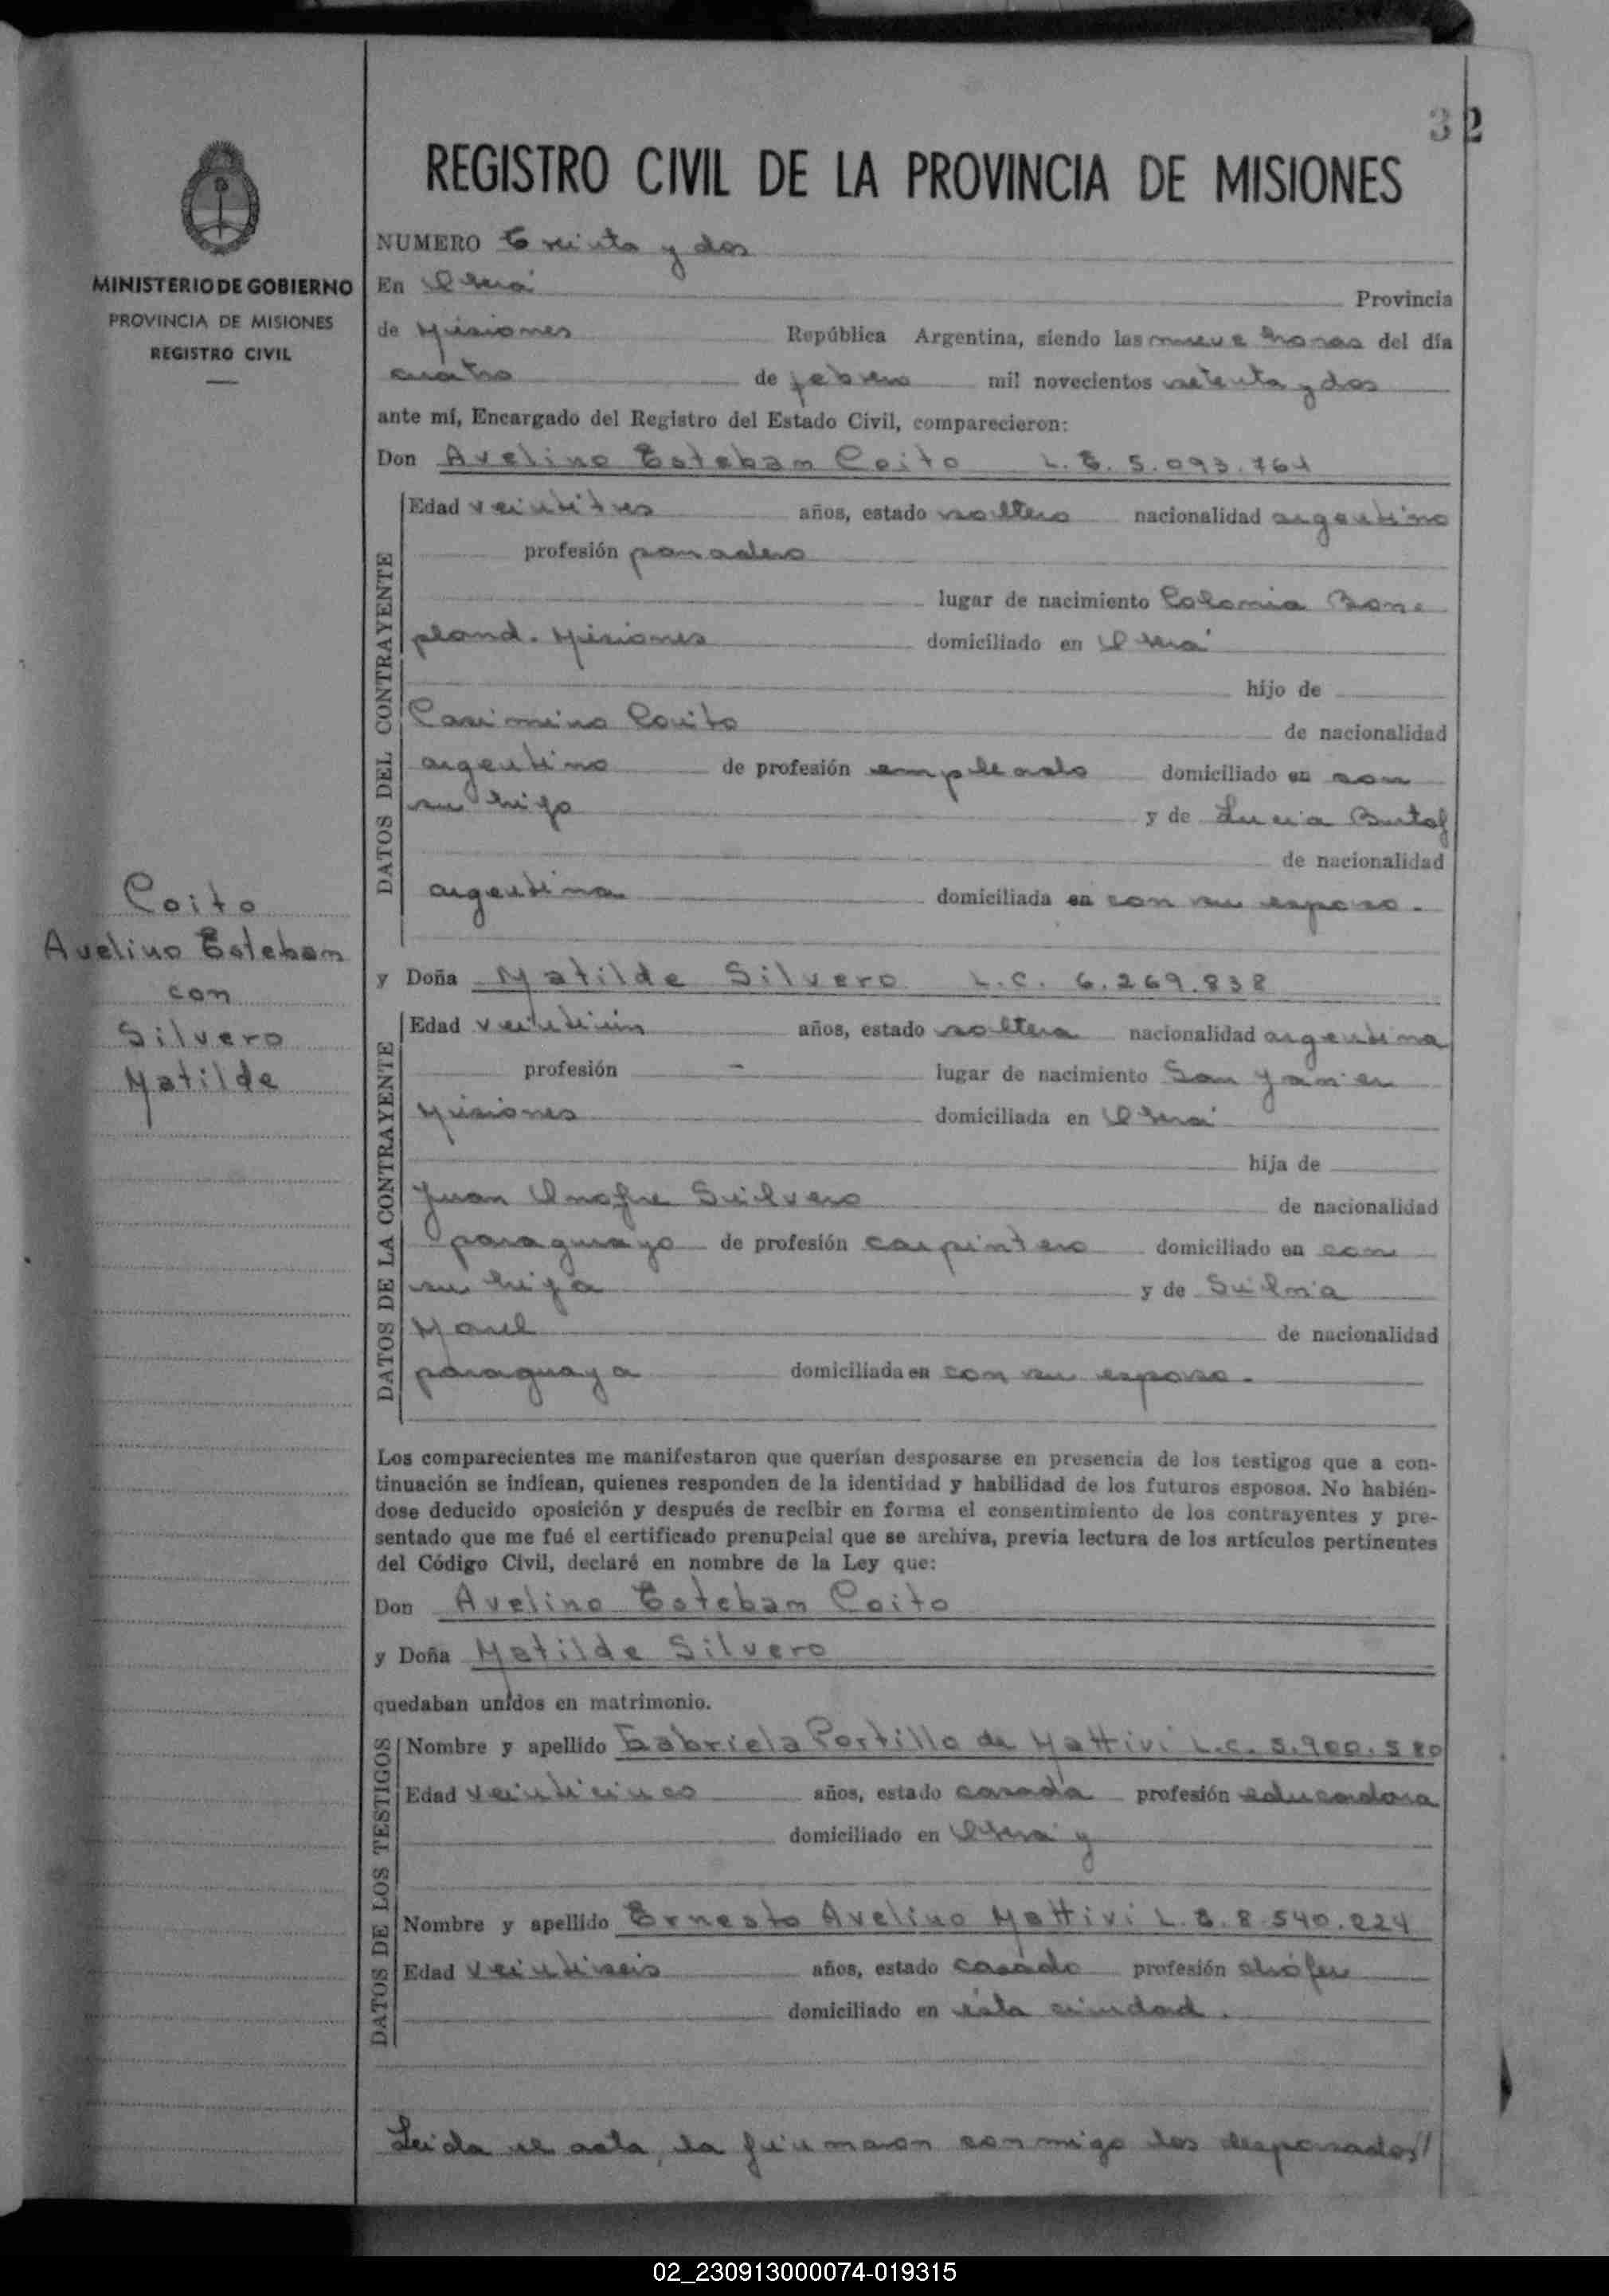 32
REGISTRO CIVIL DE LA PROVINCIA DE MISIONES
MINISTERIO DE GOBIERNO
PROVINCIA DE MISIONES
REGISTRO CIVIL
NUMERO Treinta y dos
En Oberá Provincia
de Misiones República Argentina, siendo las nueve horas del día
cuatro de febrero mil novecientos setenta y dos
ante mí, Encargado del Registro del Estado Civil, comparecieron:
Don Avelino Esteban Coito L.E. 5.093.764
DATOS DEL CONTRAYENTE
Edad veintitres años, estado soltero nacionalidad argentino
profesión panadero
lugar de nacimiento Colonia Bon-
pland. Misiones domiciliado en Oberá
hijo de
Casimiro Couito de nacionalidad
argentino de profesión empleado domiciliado en con
su hijo y de Lucia
de nacionalidad
argentina domiciliada en con su esposo.
Coito
Avelino Esteban
con
Silvero
Matilde
y Doña Matilde Silvero L.C. 6.269.838
DATOS DE LA CONTRAYENTE
Edad veintiún años, estado soltera nacionalidad argentina
profesión - lugar de nacimiento San Javier
Misiones domiciliada en Oberá
hija de
Juan Onofre Silvero de nacionalidad
paraguayo de profesión carpintero domiciliado en con
su hija y de Silvia
de nacionalidad
paraguaya domiciliada en con su esposo.
Los comparecientes me manifestaron que querían desposarse en presencia de los testigos que a con-
tinuación se indican, quienes responden de la identidad y habilidad de los futuros esposos. No habién-
dose deducido oposición y después de recibir en forma el consentimiento de los contrayentes y pre-
sentado que me fué el certificado prenupcial que se archiva, previa lectura de los artículos pertinentes
del Código Civil, declaré en nombre de la Ley que:
Don Avelino Esteban Coito
y Doña Matilde Silvero
quedaban unidos en matrimonio.
DATOS DE LOS TESTIGOS
Nombre y apellido Gabriela Portillo de Mattivi L.C. 5.900.580
Edad veinticinco años, estado casada profesión educadora
domiciliado en Oberá y
Nombre y apellido Ernesto Avelino Mattivi L.E. 8.540.224
Edad veintiseis años, estado casado profesión chófer
domiciliado en ésta ciudad.
Leida el acta, la firmaron conmigo los desposados/
02_230913000074-019315